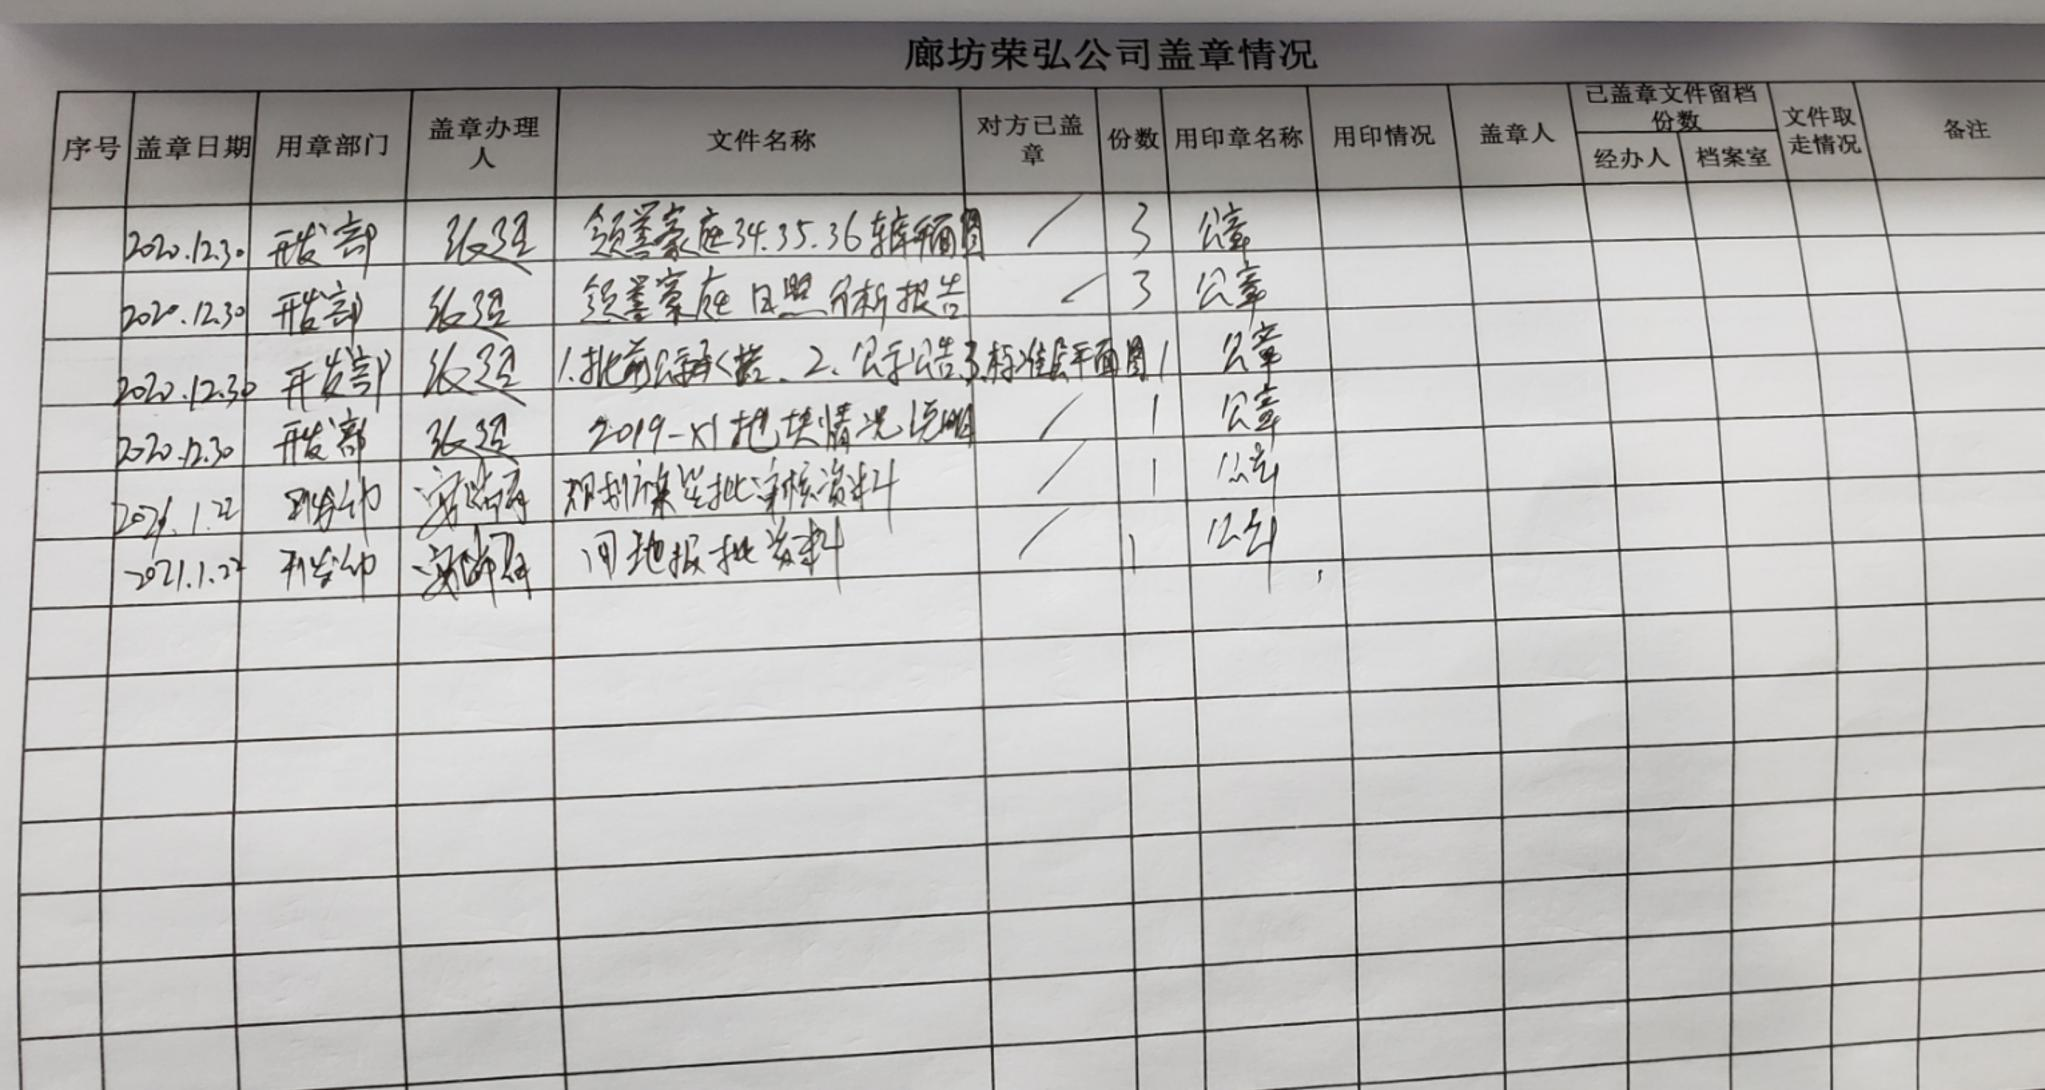 廊坊荣弘公司盖章情况
序号 盖章日期 用章部门 盖章办理人 文件名称 对方已盖章 份数 用印章名称 用印情况 盖章人 已盖章文件留档份数 经办人 档案室 文件取走情况 备注
2020.12.30 开发部 张强 领誉豪庭34.35.36 平面图 / 3 公章
2020.12.30 开发部 张强 领誉豪庭日照分析报告 / 3 公章
2020.12.30 开发部 张强 1.批前公示 2、公示公告 3.标准层平面图 1 公章
2020.12.30 开发部 张强 2019-X1地块情况说明 / 1 公章
2021.1.22 开发部 规划方案 报批审核资料 / 1 公章
2021.1.22 开发部 用地报批资料 / 1 公章